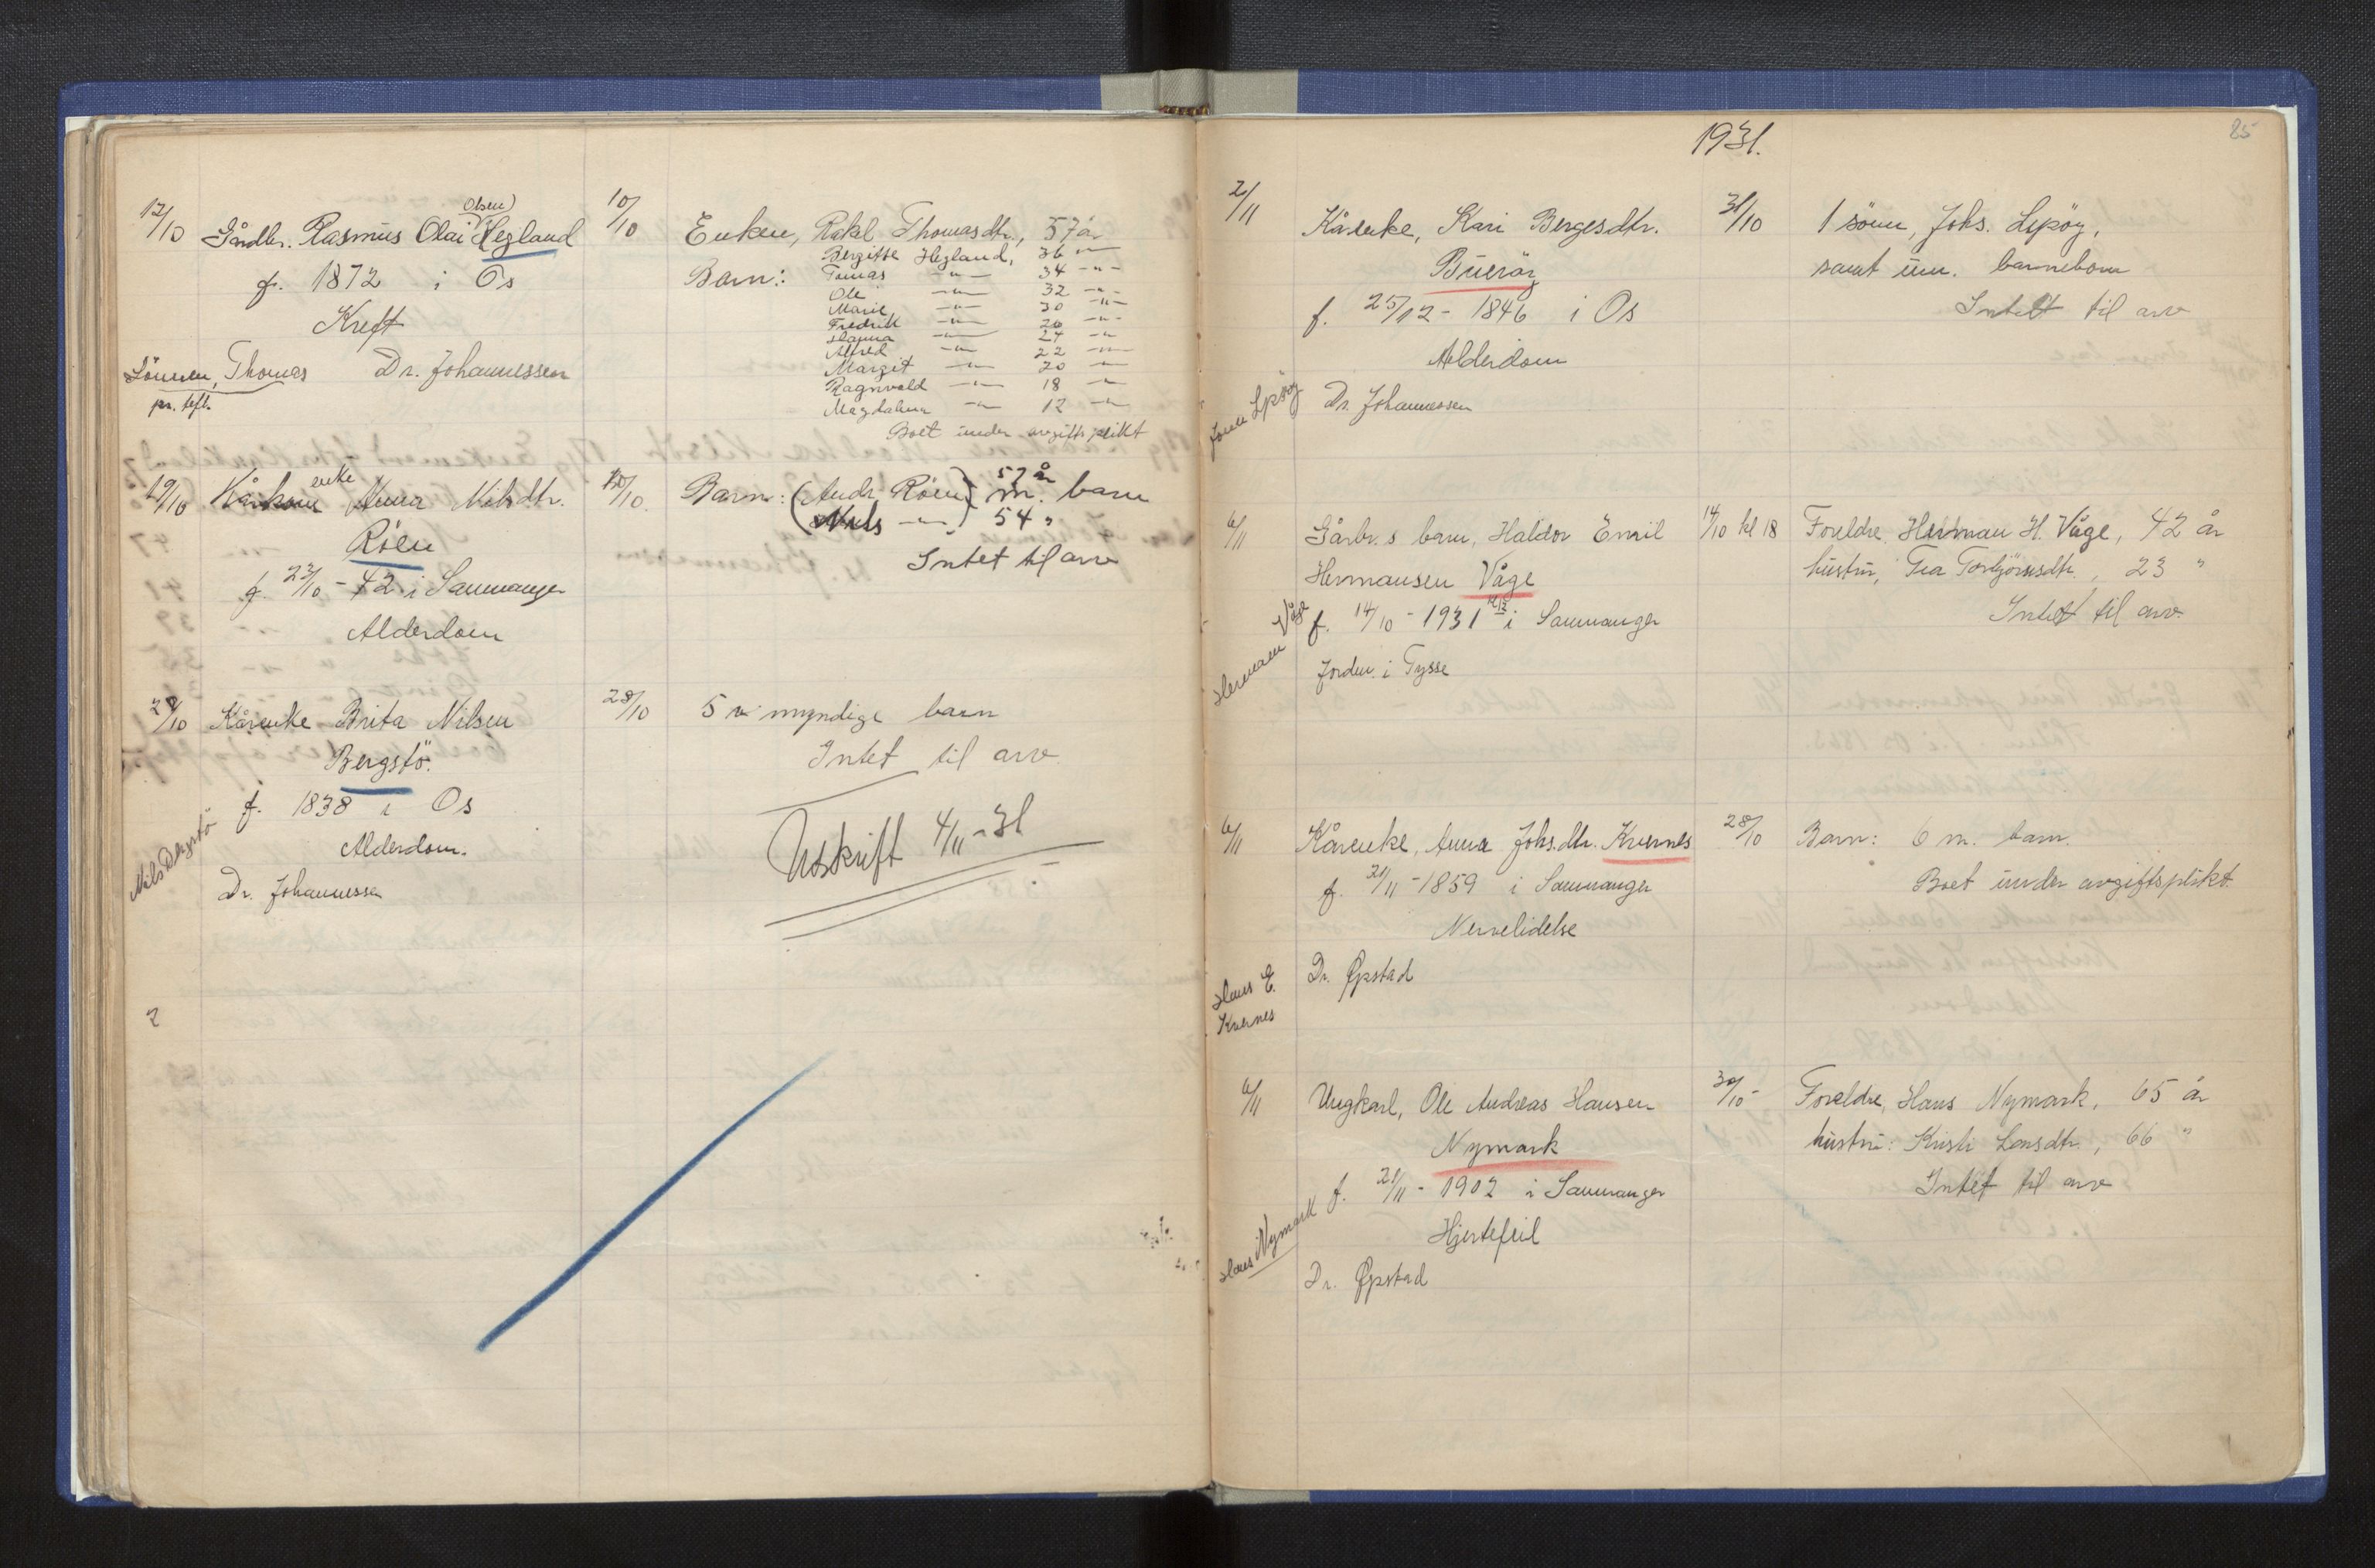 12/10 Gårdbr. Rasmus Olai (Olsen) Hegland
f. 1872 i Os
Kreft
Sönnen, Thomas Dr. Johannessen
pr. tefl.
10/10 Enken, Rakel Thomasdtr., 57 år
Barn: Bergitte Hegland, 36 —"—
Tomas —"— 34 —"—
Ole —"— 32 —"—
Marie —"— 30 —"—
Fredrik —"— 26 —"—
Hanna —"— 24 —"—
Alfred —"— 22 —"—
Margit —"— 20 —"—
Ragnvald —"— 18 —"—
Magdalena —"— 12 —"—
Boet under avgiftsplikt
19/10 Kårkone enke Anna Nilsdtr.
Röen
f. 23/10 - 42 i Samnanger
Alderdom
10/10. Barn: (Andr. Röen) 57 år m. barn
(Nils —"—) 54 "
Intet til arv
28/10 Kårenke Brita Nilsen
Bergstö.
f. 1838 i Os
Alderdom.
Nils Bergstö
Dr. Johannessen
28/10 5 myndige barn
Intet til arv
Utskrift 4/11 - 31
2
1931.
85
2/11 Kårenke, Kari Bergesdtr.
Bueröy
f. 25/12 - 1846 i Os
Alderdom
Dr. Johannessen
Lepsöy
31/10 1 sönn, Johs. Lepsöy,
samt um. barnebarn
Intet til arv
6/11 Gårbr.s barn, Haldor Emil
Hermansen Våge
f. 14/10 - 1931 kl 12 i Samnanger
Jordm. i Tysse
Herman Våge
14/10 kl 18 Foreldre, Herman H. Våge, 42 år
hustru, Tea Torbjörnsdtr., 23 "
Intet til arv.
6/11 Kårenke, Anna Johs.dtr. Kvernes
f. 21/11 - 1859 i Samnanger
Nervelidelse
Dr. Øpstad
Hans E.
Kvernes
28/10 Barn: 6 m. barn.
Boet under avgiftsplikt.
6/11 Ungkarl, Ole Andreas Hansen
Nymark
f. 21/11 - 1902 i Samnanger
Hjertefeil
Dr. Øpstad
Hans Nymark
30/10 - Foreldre, Hans Nymark, 65 år
hustru: Kristi Larsdtr., 66 "
Intet til arv